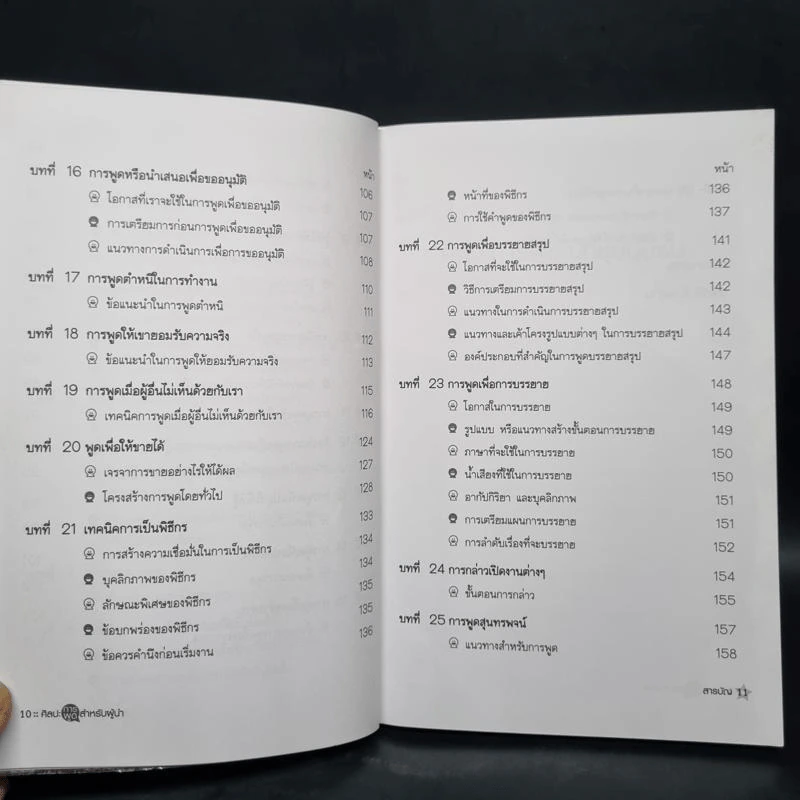 หน้า
บทที่ 16 การพูดหรือนำเสนอเพื่อขออนุมัติ 106
โอกาสที่เราจะใช้ในการพูดเพื่อขออนุมัติ 107
การเตรียมการก่อนการพูดเพื่อขออนุมัติ 107
แนวทางการดำเนินการเพื่อการขออนุมัติ 108
บทที่ 17 การพูดตำหนิในการทำงาน 110
ข้อแนะนำในการพูดตำหนิ 111
บทที่ 18 การพูดให้เขายอมรับความจริง 112
ข้อแนะนำในการพูดให้ยอมรับความจริง 113
บทที่ 19 การพูดเมื่อผู้อื่นไม่เห็นด้วยกับเรา 115
เทคนิคการพูดเมื่อผู้อื่นไม่เห็นด้วยกับเรา 116
บทที่ 20 พูดเพื่อให้ขายได้ 124
เจรจาการขายอย่างไรให้ได้ผล 127
โครงสร้างการพูดโดยทั่วไป 128
บทที่ 21 เทคนิคการเป็นพิธีกร 133
การสร้างความเชื่อมั่นในการเป็นพิธีกร 134
บุคลิกภาพของพิธีกร 134
ลักษณะพิเศษของพิธีกร 135
ข้อบกพร่องของพิธีกร 135
ข้อควรคำนึงก่อนเริ่มงาน 136
10 :: ศิลปะการพูดสำหรับผู้นำ
หน้า
หน้าที่ของพิธีกร 136
การใช้คำพูดของพิธีกร 137
บทที่ 22 การพูดเพื่อบรรยายสรุป 141
โอกาสที่จะใช้ในการบรรยายสรุป 142
วิธีการเตรียมการบรรยายสรุป 142
แนวทางในการดำเนินการบรรยายสรุป 143
แนวทางและเค้าโครงรูปแบบต่างๆ ในการบรรยายสรุป 144
องค์ประกอบที่สำคัญในการพูดบรรยายสรุป 147
บทที่ 23 การพูดเพื่อการบรรยาย 148
โอกาสในการบรรยาย 149
รูปแบบ หรือแนวทางสร้างขั้นตอนการบรรยาย 149
ภาษาที่จะใช้ในการบรรยาย 150
น้ำเสียงที่ใช้ในการบรรยาย 150
อากัปกิริยา และบุคลิกภาพ 151
การเตรียมแผนการบรรยาย 151
การลำดับเรื่องที่จะบรรยาย 152
บทที่ 24 การกล่าวเปิดงานต่างๆ 154
ขั้นตอนการกล่าว 155
บทที่ 25 การพูดสุนทรพจน์ 157
แนวทางสำหรับการพูด 158
สารบัญ 11